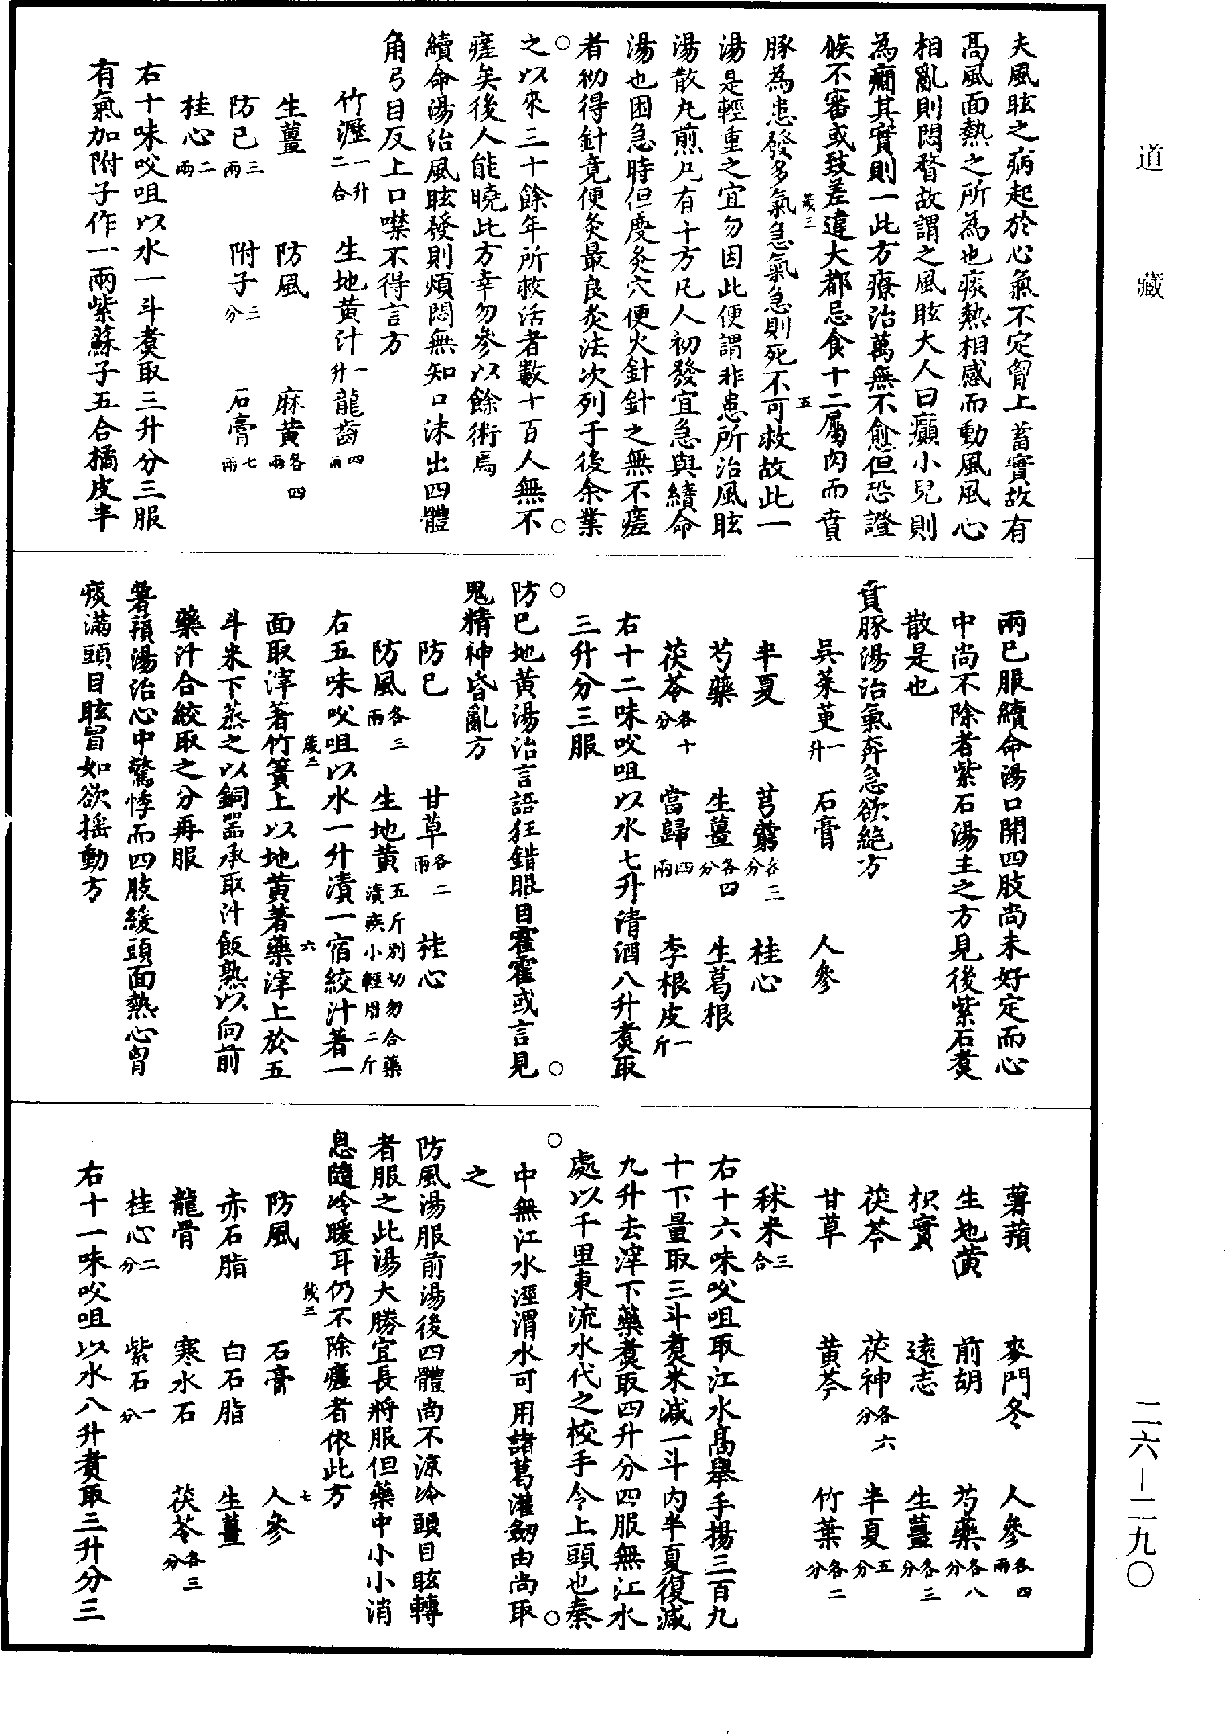 道藏
夫風眩之病起於心氣不定胷上蓄實故有
高風面熱之所為也痰熱相感而動風風心
相亂則悶瞀故謂之風眩大人曰癲小兒則
為癇其實則一此方療治萬無不愈但恐證
候不審或致差違大都忌食十二屬肉而賁
歲三 五
豚為患發多氣急氣急則死不可救故此一
湯是輕重之宜勿因此便謂非患所治風眩
湯散丸煎凡有十方凡人初發宜急與續命
湯也困急時但度灸穴便火針針之無不瘥
者初得針竟便灸最良灸法次列于後余業
之以來三十餘年所救活者數十百人無不
瘥矣後人能曉此方幸勿參以餘術焉
續命湯治風眩發則煩悶無知口沫出四體
角弓目反上口噤不得言方
竹瀝一升二合 生地黄汁一升 龍齒四兩
生薑 防風 麻黄各四兩
防已三兩 附子三分 石膏七兩
桂心二兩
右十味㕮咀以水一斗煑取三升分三服
有氣加附子作一兩紫蘇子五合橘皮半
兩已服續命湯口開四肢尚未好定而心
中尚不除者紫石湯主之方見後紫石煑
散是也
賁豚湯治氣奔急欲絶方
吳茱萸一升 石膏 人參
半夏 芎藭各三分 桂心
芍藥 生薑各四分 生葛根
茯苓各十分 當歸四兩 李根皮一斤
右十二味㕮咀以水七升清酒八升煑取
三升分三服
防已地黄湯治言語狂錯眼目霍霍或言見
鬼精神昏亂方
防已 甘草各二兩 桂心
防風各三兩 生地黄五斤别切勿合藥漬疾小輕用二斤
右五味㕮咀以水一升漬一宿絞汁著一
歲三 六
面取滓著竹簀上以地黄著藥滓上於五
斗米下蒸之以銅器承取汁飯熟以向前
藥汁合絞取之分再服
薯蕷湯治心中驚悸而四肢緩頭面熱心胷
痰滿頭目眩冒如欲摇動方
薯蕷 麥門冬 人參各四兩
生地黄 前胡 芍藥各八分
枳實 遠志 生薑各三分
茯苓 茯神各六分 半夏五分
甘草 黄芩 竹葉各二分
秫米三合
右十六味㕮咀取江水高舉手揚三百九
十下量取三斗煑米減一斗内半夏復減
九升去滓下藥煑取四升分四服無江水
處以千里東流水代之校手令上頭也秦
中無江水涇渭水可用諸葛灌劒由尚取
之
防風湯服前湯後四體尚不涼冷頭目眩轉
者服之此湯大勝宜長將服但藥中小小消
息隨冷暖耳仍不除瘥者依此方
歲三 七
防風 石膏 人參
赤石脂 白石脂 生薑
龍骨 寒水石 茯苓各三分
桂心二分 紫石一分
右十一味㕮咀以水八升煑取三升分三
二六－二九〇